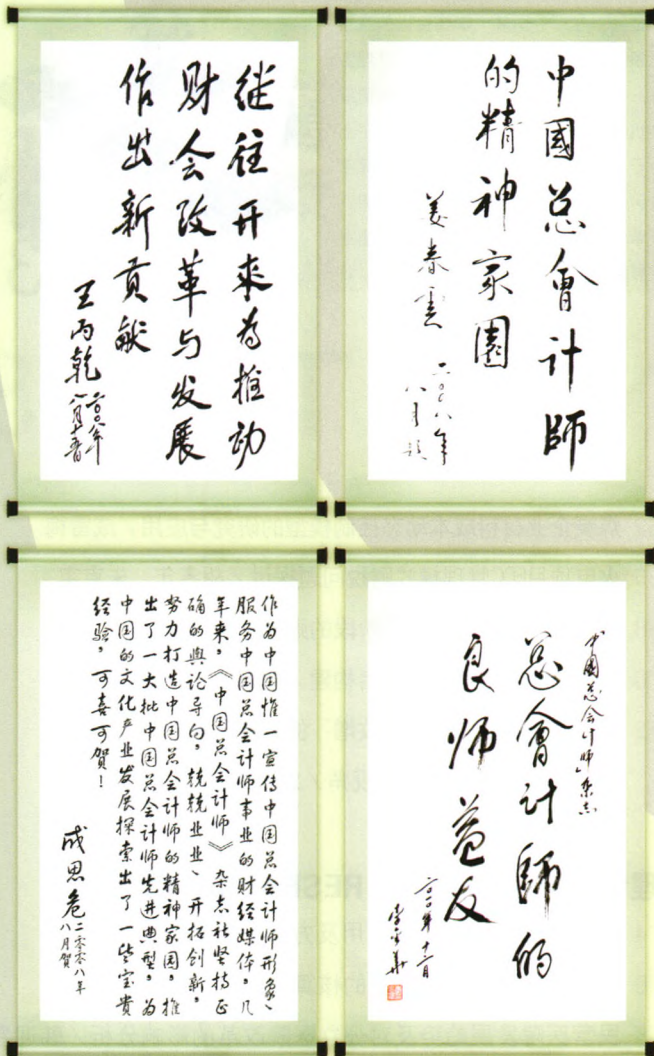 继往开来为推动
财会改革与发展
作出新贡献
王丙乾
二〇〇八年
八月十一日
中國总會计師
的精神家園
姜春雲
二〇〇八年
八月题
作为中国惟一宣传中国总会计师形象、
服务中国总会计师事业的财经媒体,几
年来,《中国总会计师》杂志社坚持正
确的舆论导向,兢兢业业、开拓创新,
努力打造中国总会计师的精神家园,推
出了一大批中国总会计师先进典型,为
中国的文化产业发展探索出了一些宝贵
经验,可喜可贺!
成思危
二零零八年
八月贺
中国总会计师杂志
总會计師的
良师益友
二〇〇年十一月
李金华